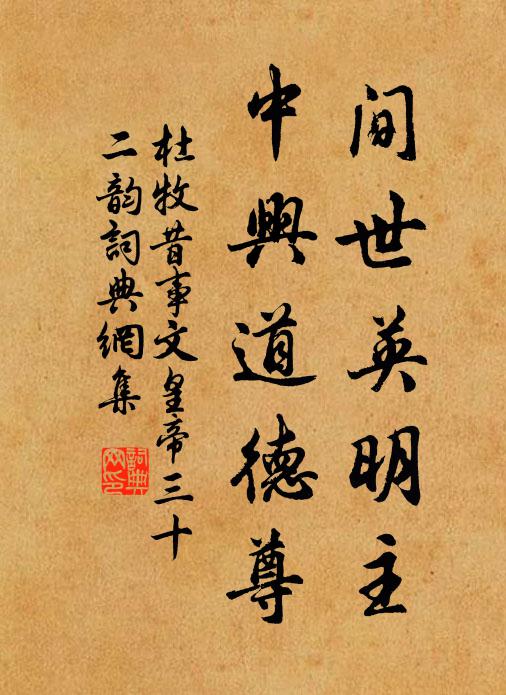 间世英明主
中興道德尊
杜牧昔事文皇帝三十
二韵詞典網集
詞典
網印